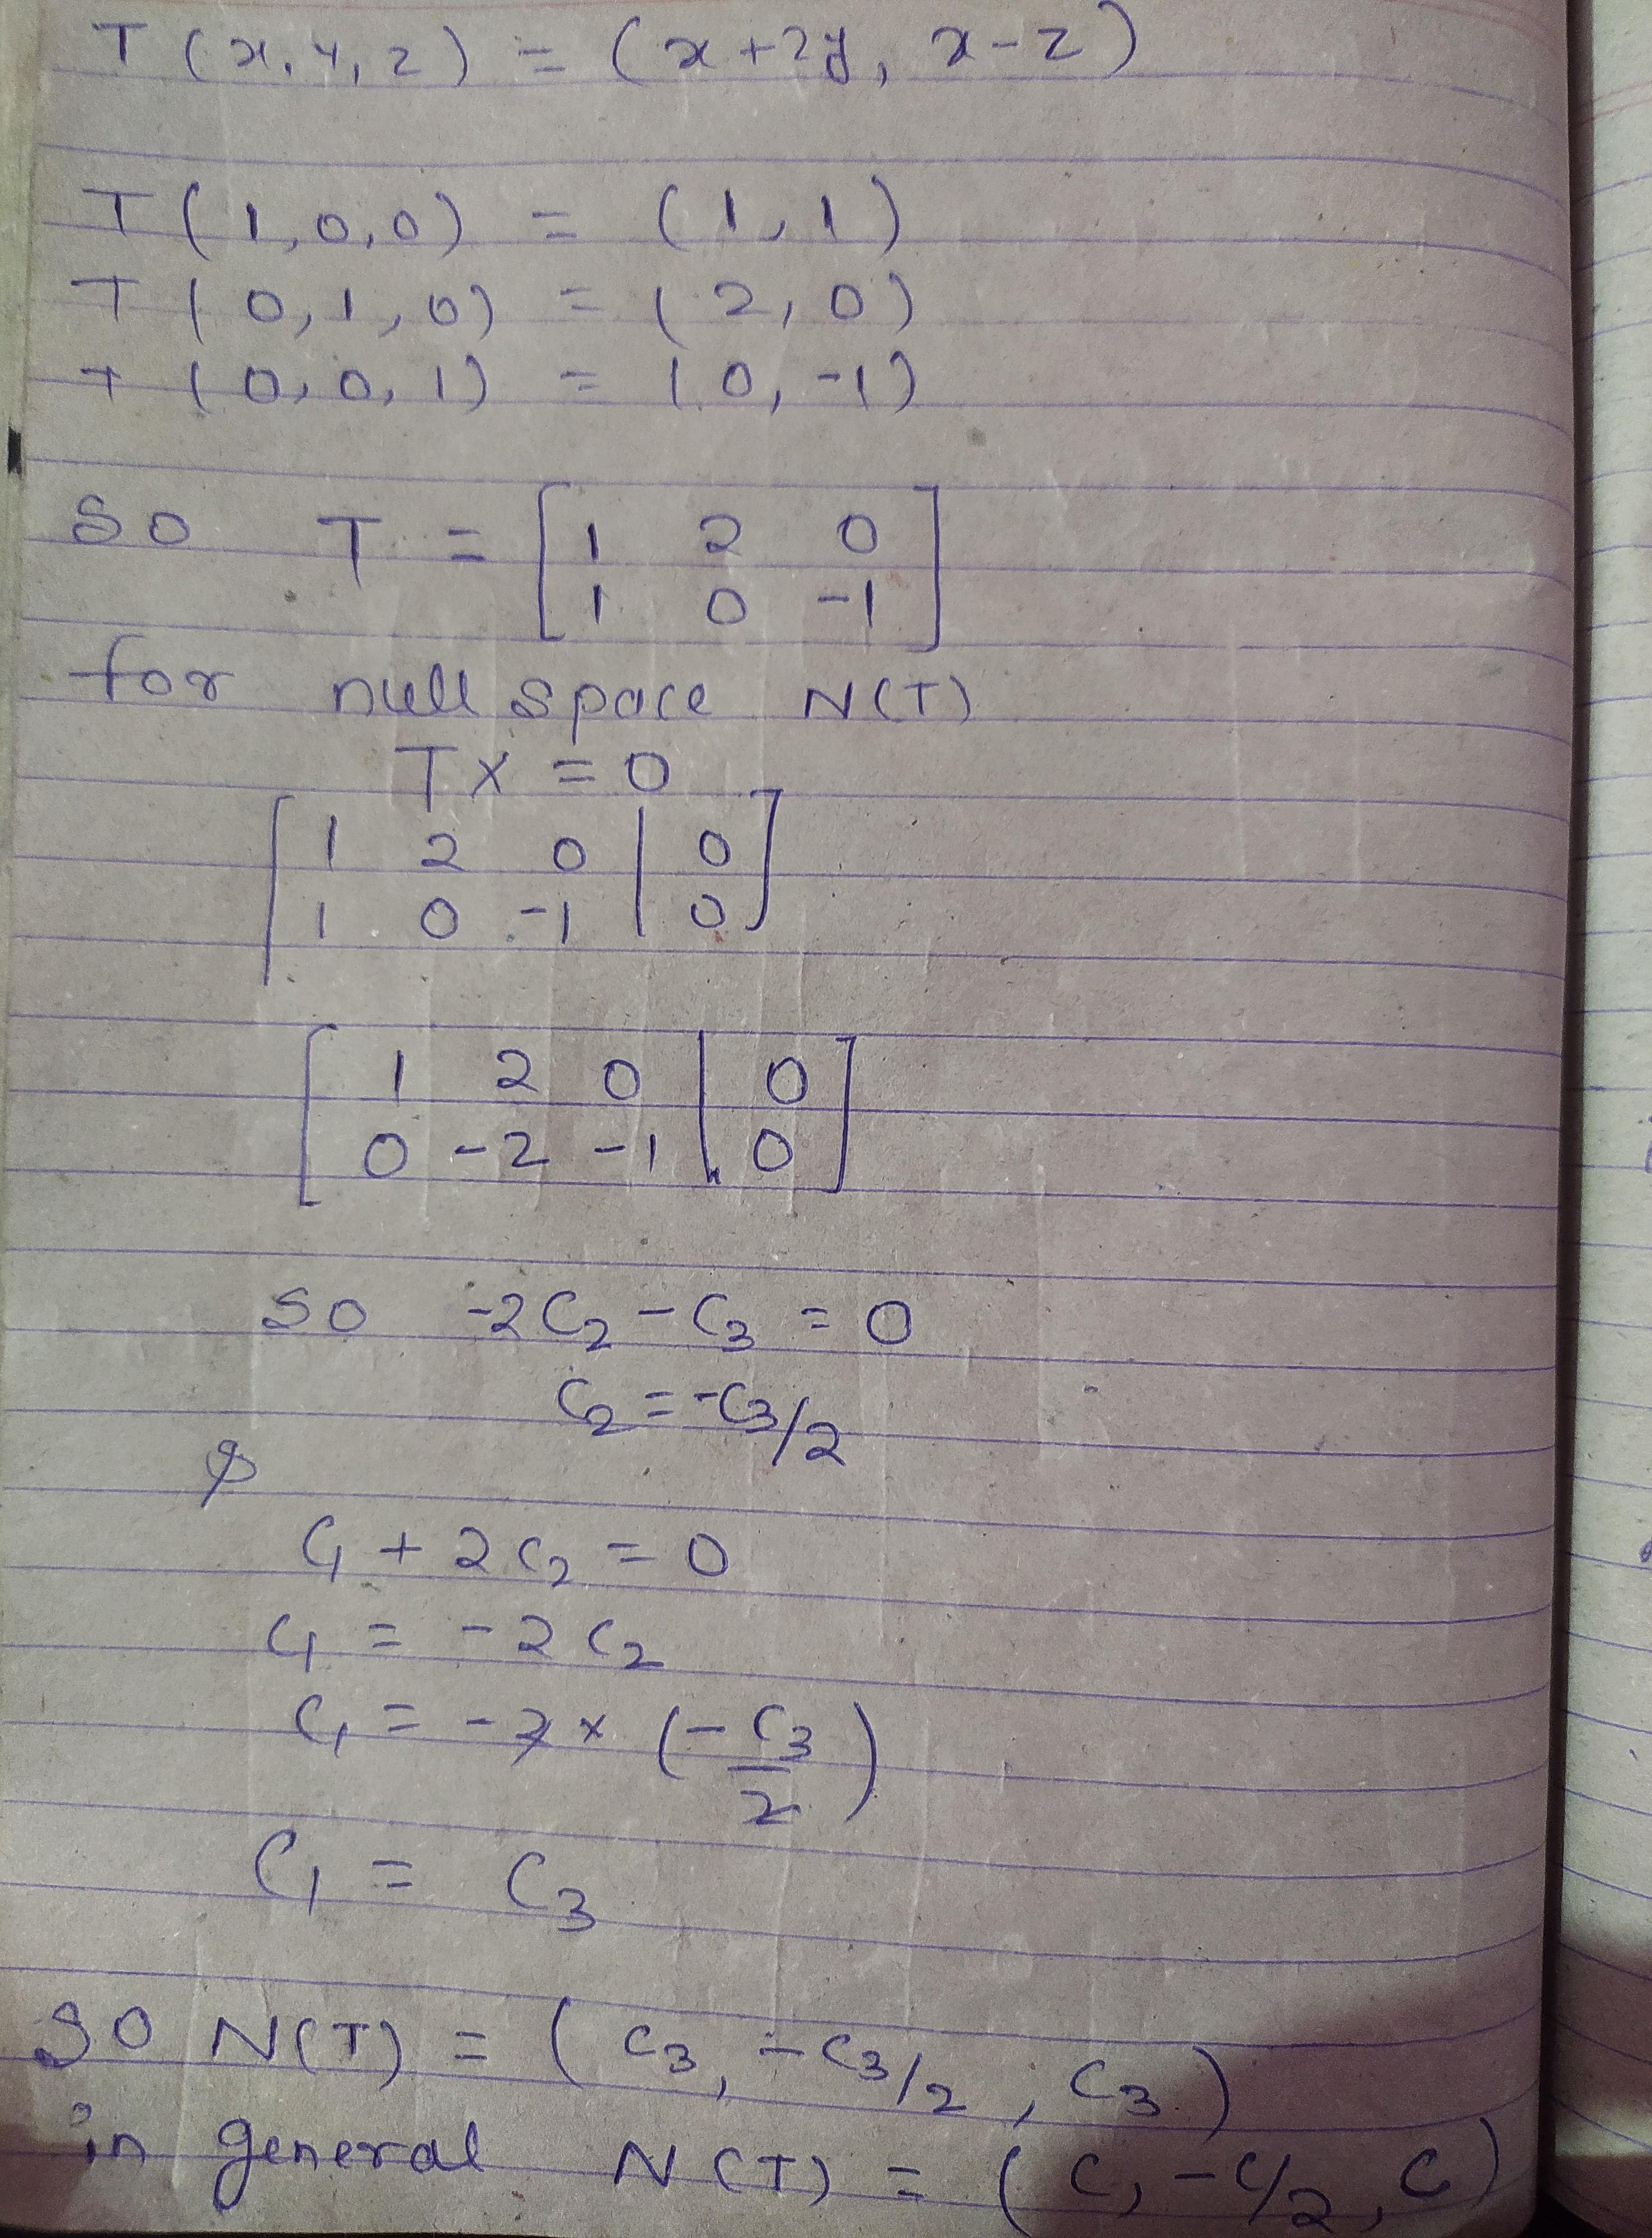 T (x, y, z) = (x + 2y, x - z)
T (1, 0, 0) = (1, 1)
T (0, 1, 0) = (2, 0)
T (0, 0, 1) = (0, -1)
so T = [ 1 2 0
1 0 -1 ]
for null space N(T)
TX = 0
[ 1 2 0 | 0
1 0 -1 | 0 ]
[ 1 2 0 | 0
0 -2 -1 | 0 ]
so -2C₂ - C₃ = 0
C₂ = -C₃/2
&
C₁ + 2C₂ = 0
C₁ = -2C₂
C₁ = -2 × (-C₃/2)
C₁ = C₃
SO N(T) = (C₃, -C₃/2, C₃)
in general N(T) = (C, -C/2, C)